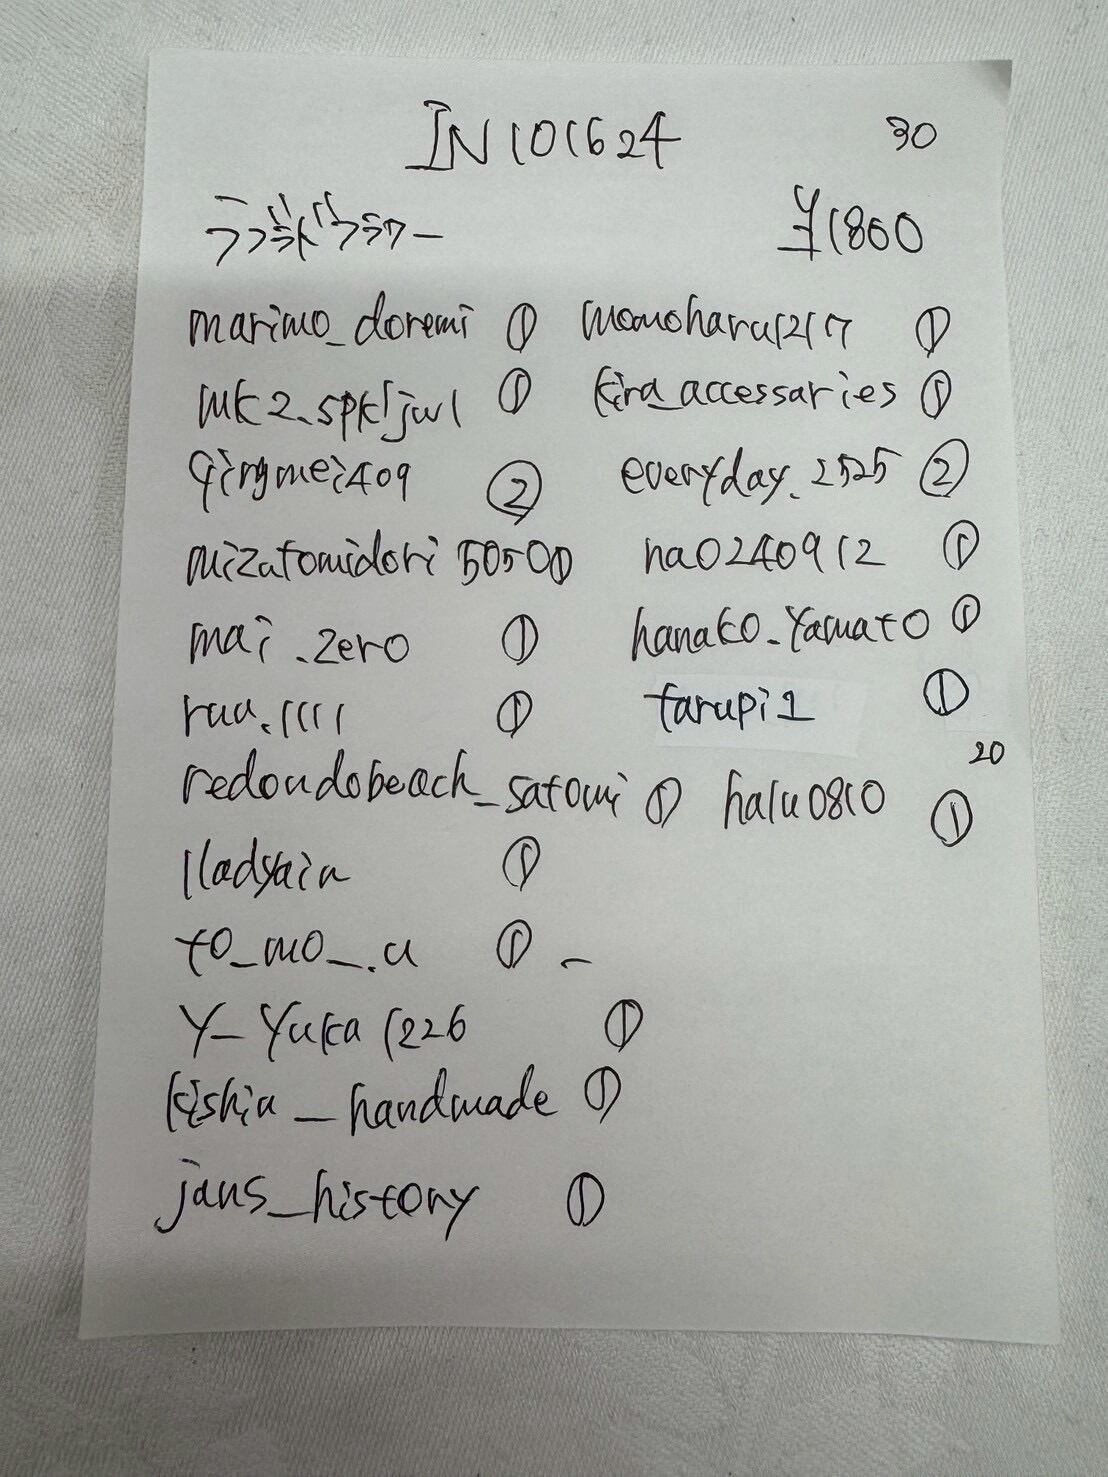 IN101624 30
¥1800
marimo_doremi ① momoharu1217 ①
mk2_spkljwl ① kira_accessaries ①
qingmei409 ② everyday.2525 ②
mizutomidori5050① na0240912 ①
mai.zero ① hanako_yamato ①
ruu.1111 ① tarupi1 ①
20
redondobeach_satomi ① halu0810 ①
lladyain ①
to_mo_.u ① -
y_yuka1226 ①
kishiu_handmade ①
jans_history ①